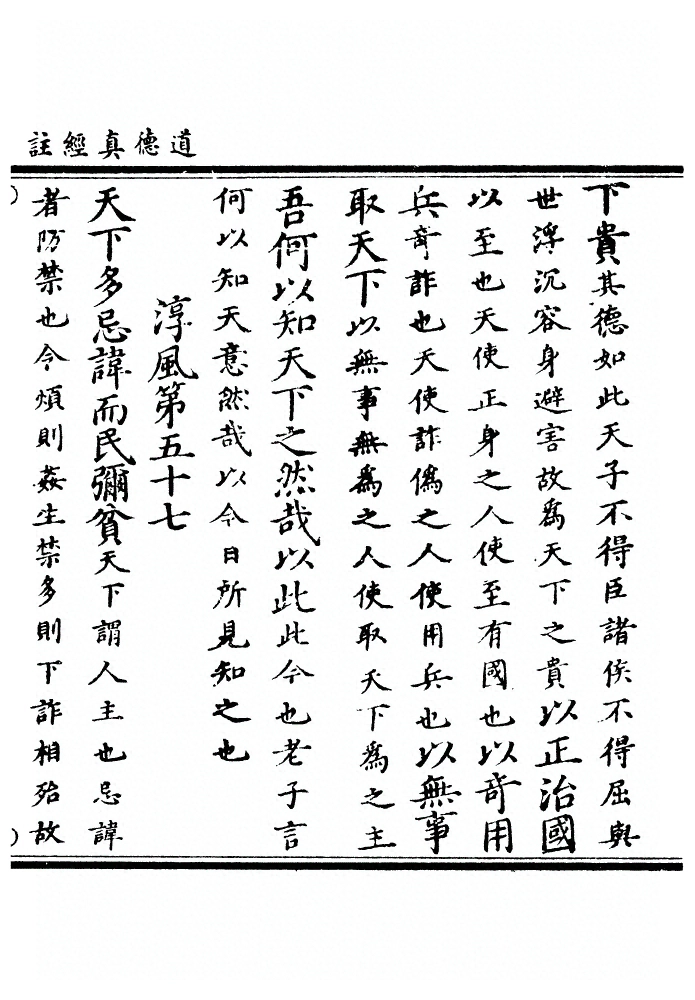 道德真經註
下貴其德如此天子不得臣諸侯不得屈與
世浮沉容身避害故為天下之貴以正治國
以至也天使正身之人使至有國也以奇用
兵奇詐也天使詐偽之人使用兵也以無事
取天下以無事無為之人使取天下為之主
吾何以知天下之然哉以此此今也老子言
何以知天意然哉以今日所見知之也
淳風第五十七
天下多忌諱而民彌貧天下謂人主也忌諱
者防禁也令煩則姦生禁多則下詐相殆故